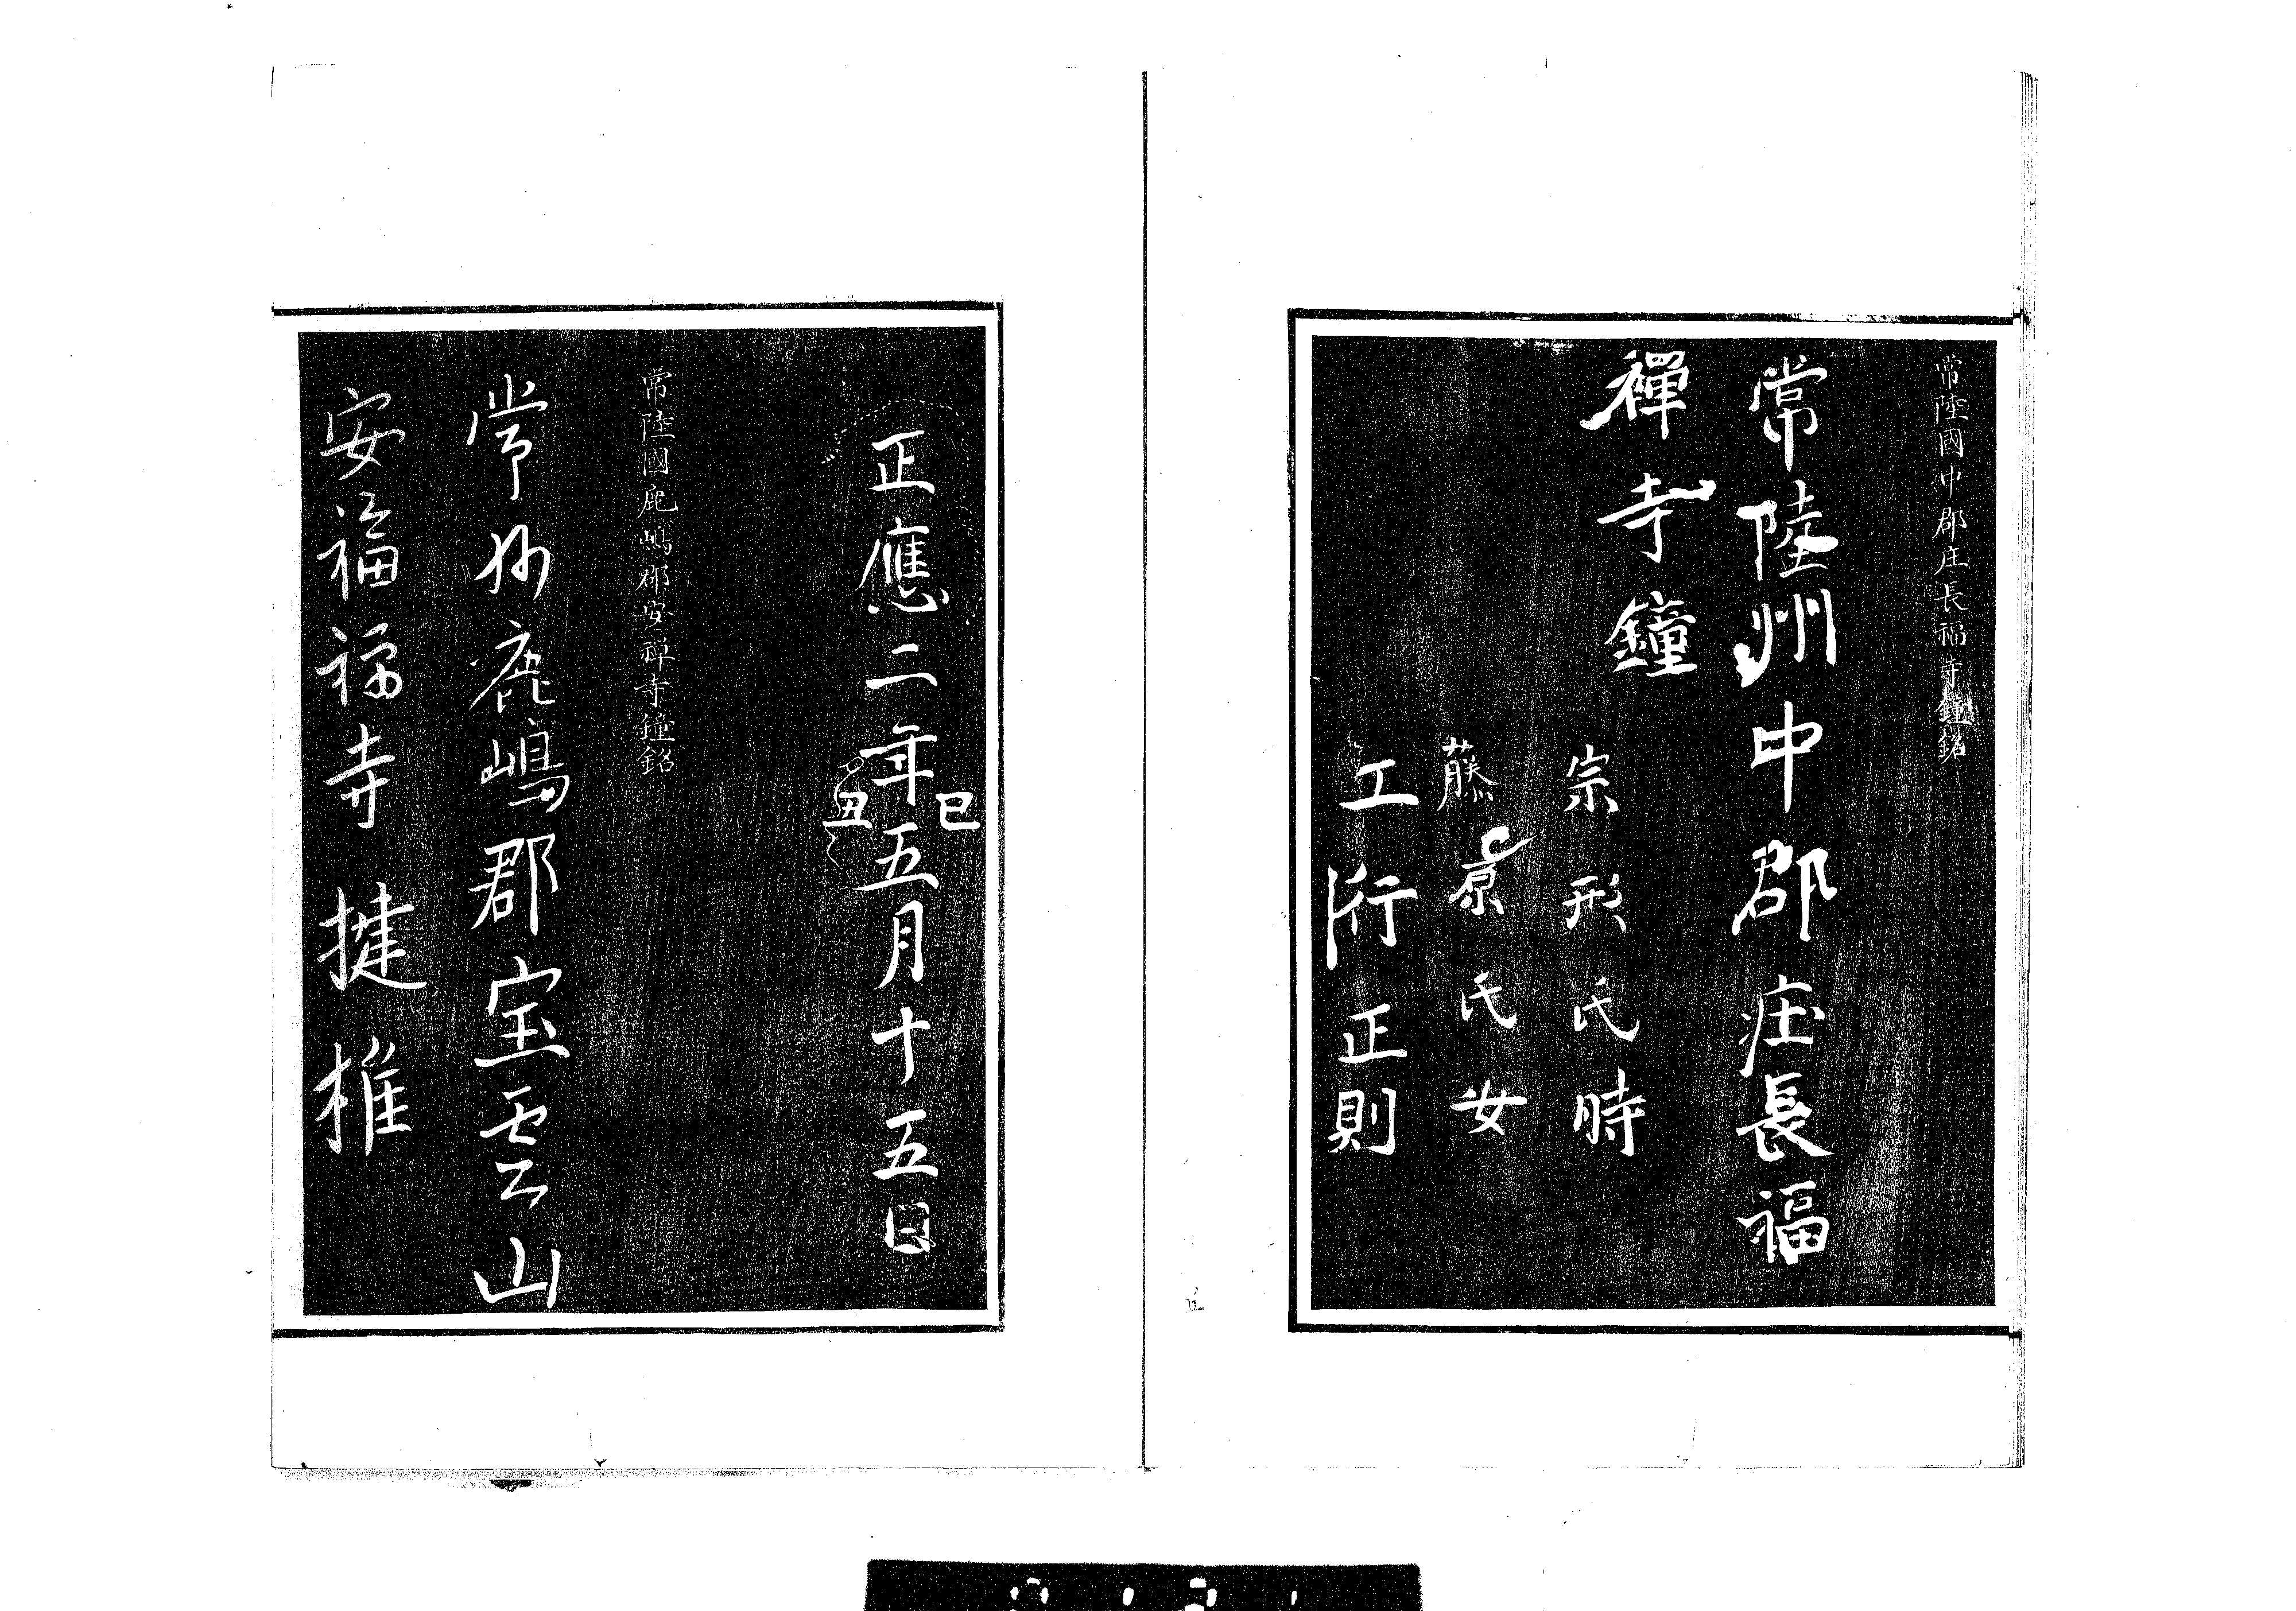 常陸國中郡庄長福寺鐘銘
常陸州中郡庄長福
禅寺鐘
宗形氏時
藤原氏女
工 正則
正應二年己丑五月十五日
常陸國鹿嶋郡安禅寺鐘銘
常州鹿嶋郡宝雲山
安福禅寺揵椎